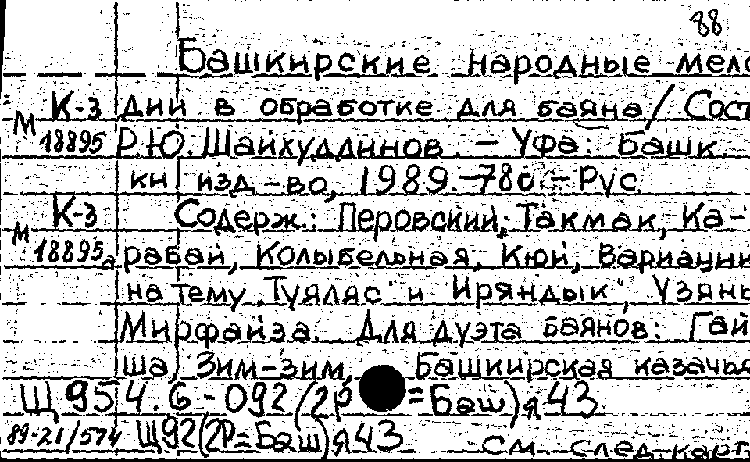 88
Башкирские народные мело
К-3 дии в обработке для баяна / Сост
М 18895 Р.Ю. Шайхудлинов. - Уфа: Башк.
кн изд-во, 1989. - 78с. - Рус.
К-3 Содерж.: Перовский; Такмак, Ка-
М 18895а рабай, Колыбельная, Кюй, Вариации
на тему "Туяляс" и Иряндык", Узянь
Мирфайза. Для дуэта баянов: Гай
ша, Зим-зим, Башкирская казачья
Щ 954.6-092 (2Р =Баш) я 43
89-21/574 Щ92(2Р=Баш)я43 См след.карт